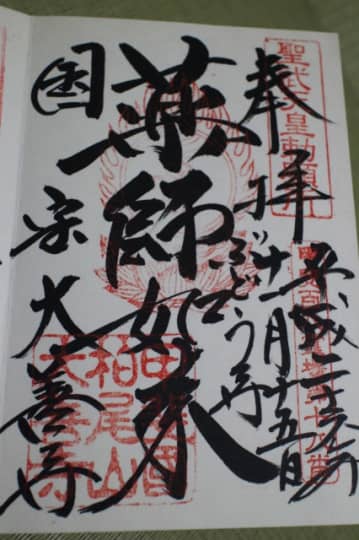 聖武天皇勅願
奉拝
平成二十
十一月十五日
ぶどう寺
薬師如来
国宝 大善寺
柏尾山
大善寺